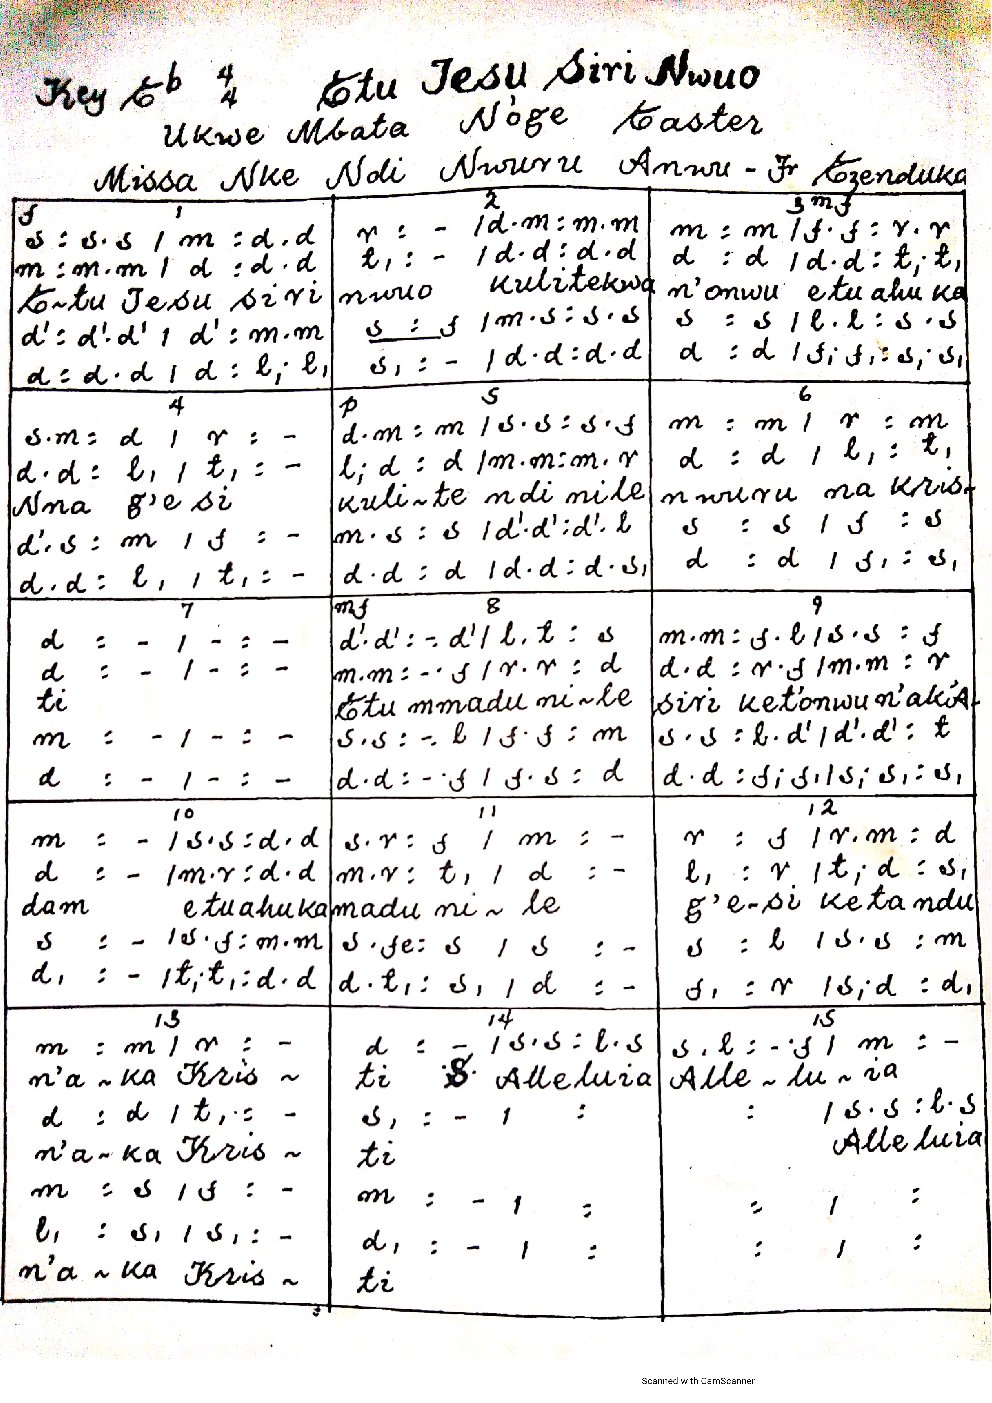 Key Eb 4/4 Etu Jesu Siri Nwuo
Ukwe Mbata N'oge Easter
Missa Nke Ndi Nwuru Anwu - Fr Ezenduka
f 1
s : s.s / m : d.d
m : m.m / d : d.d
E~tu Jesu siri
d' : d'.d' / d' : m.m
d : d.d / d : l,. l,
2
r : - / d.m : m.m
t, : - / d.d : d.d
nwuo kulitekwa
s : f / m.s : s.s
s, : - / d.d : d.d
3 mf
m : m / f.f : r.r
d : d / d.d : t,. t,
n'onwu etu ahu ka
s : s / l.l : s.s
d : d / f,. f, : s,. s,
4
s.m : d / r : -
d.d : l, / t, : -
Nna g'e si
d'.s : m / f : -
d.d : l, / t, : -
p 5
d.m : m / s.s : s.f
l,. d : d / m.m : m.r
kuli~te ndi nile
m.s : s / d'.d' : d'.l
d.d : d / d.d : d.s,
6
m : m / r : m
d : d / l, : t,
nwuru na Kris-
s : s / f : s
d : d / f, : s,
7
d : - / - : -
d : - / - : -
ti
m : - / - : -
d : - / - : -
mf 8
d'.d' : -.d' / l.t : s
m.m : -.f / r.r : d
Etu mmadu ni~le
s.s : -.l / f.f : m
d.d : -.f / f.s : d
9
m.m : f.l / s.s : f
d.d : r.f / m.m : r
siri keta'onwu n'akA-
s.s : l.d' / d'.d' : t
d.d : f,. f, / s,. s, : s,
10
m : - / s.s : d.d
d : - / m.r : d.d
dam etuahuka
s : - / s.f : m.m
d, : - / t,. t, : d.d
11
s.r : f / m : -
m.r : t, / d : -
madu ni ~ le
s.fe : s / s : -
d.t, : s, / d : -
12
r : f / r.m : d
l, : r / t,. d : s,
g'e-si keta ndu
s : l / s.s : m
f, : r / s,. d : d,
13
m : m / r : -
n'a ~ ka Kris ~
d : d / t, : -
n'a ~ ka Kris ~
m : s / f : -
l, : s, / s, : -
n'a ~ ka Kris ~
14
d : - / s.s : l.s
ti S Alleluia
s, : - / :
ti
m : - / :
d, : - / :
ti
15
s.l : -.f / m : -
Alle ~ lu ~ ia
: / s.s : l.s
Alleluia
: / :
: / :
Scanned with CamScanner